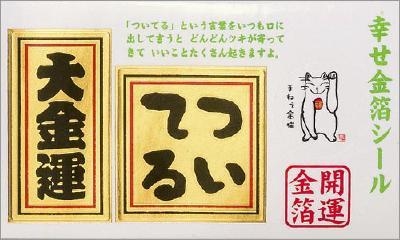 幸せ金箔シール
「ついてる」という言葉をいつも口に
出して言うと どんどんツキが寄って
きて いいことたくさん起きますよ。
大金運
つい
てる
開運
金箔